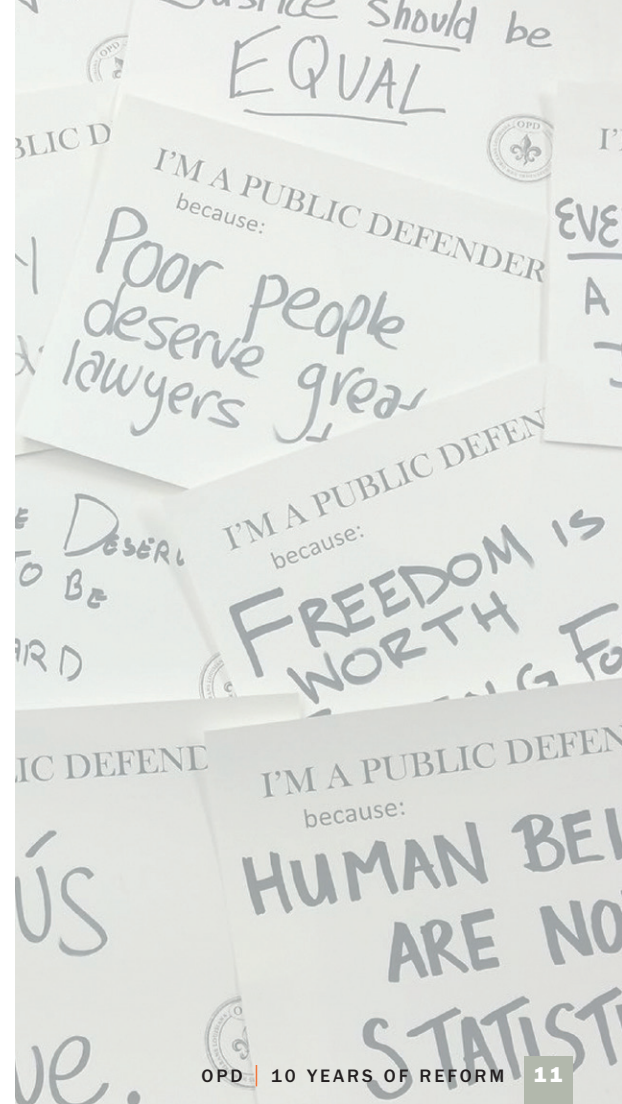 Justice should be
EQUAL
OPD
BLIC D
I'M A PUBLIC DEFENDER
because:
Poor people
deserve great
lawyers
I'
EVE
A
J
DESERV
TO BE
ARD
I'M A PUBLIC DEFEN
because:
FREEDOM IS
WORTH
FO
IC DEFEND
ÚS
ve.
I'M A PUBLIC DEFEN
because:
HUMAN BEI
ARE NO
STATIST
OPD | 10 YEARS OF REFORM 11